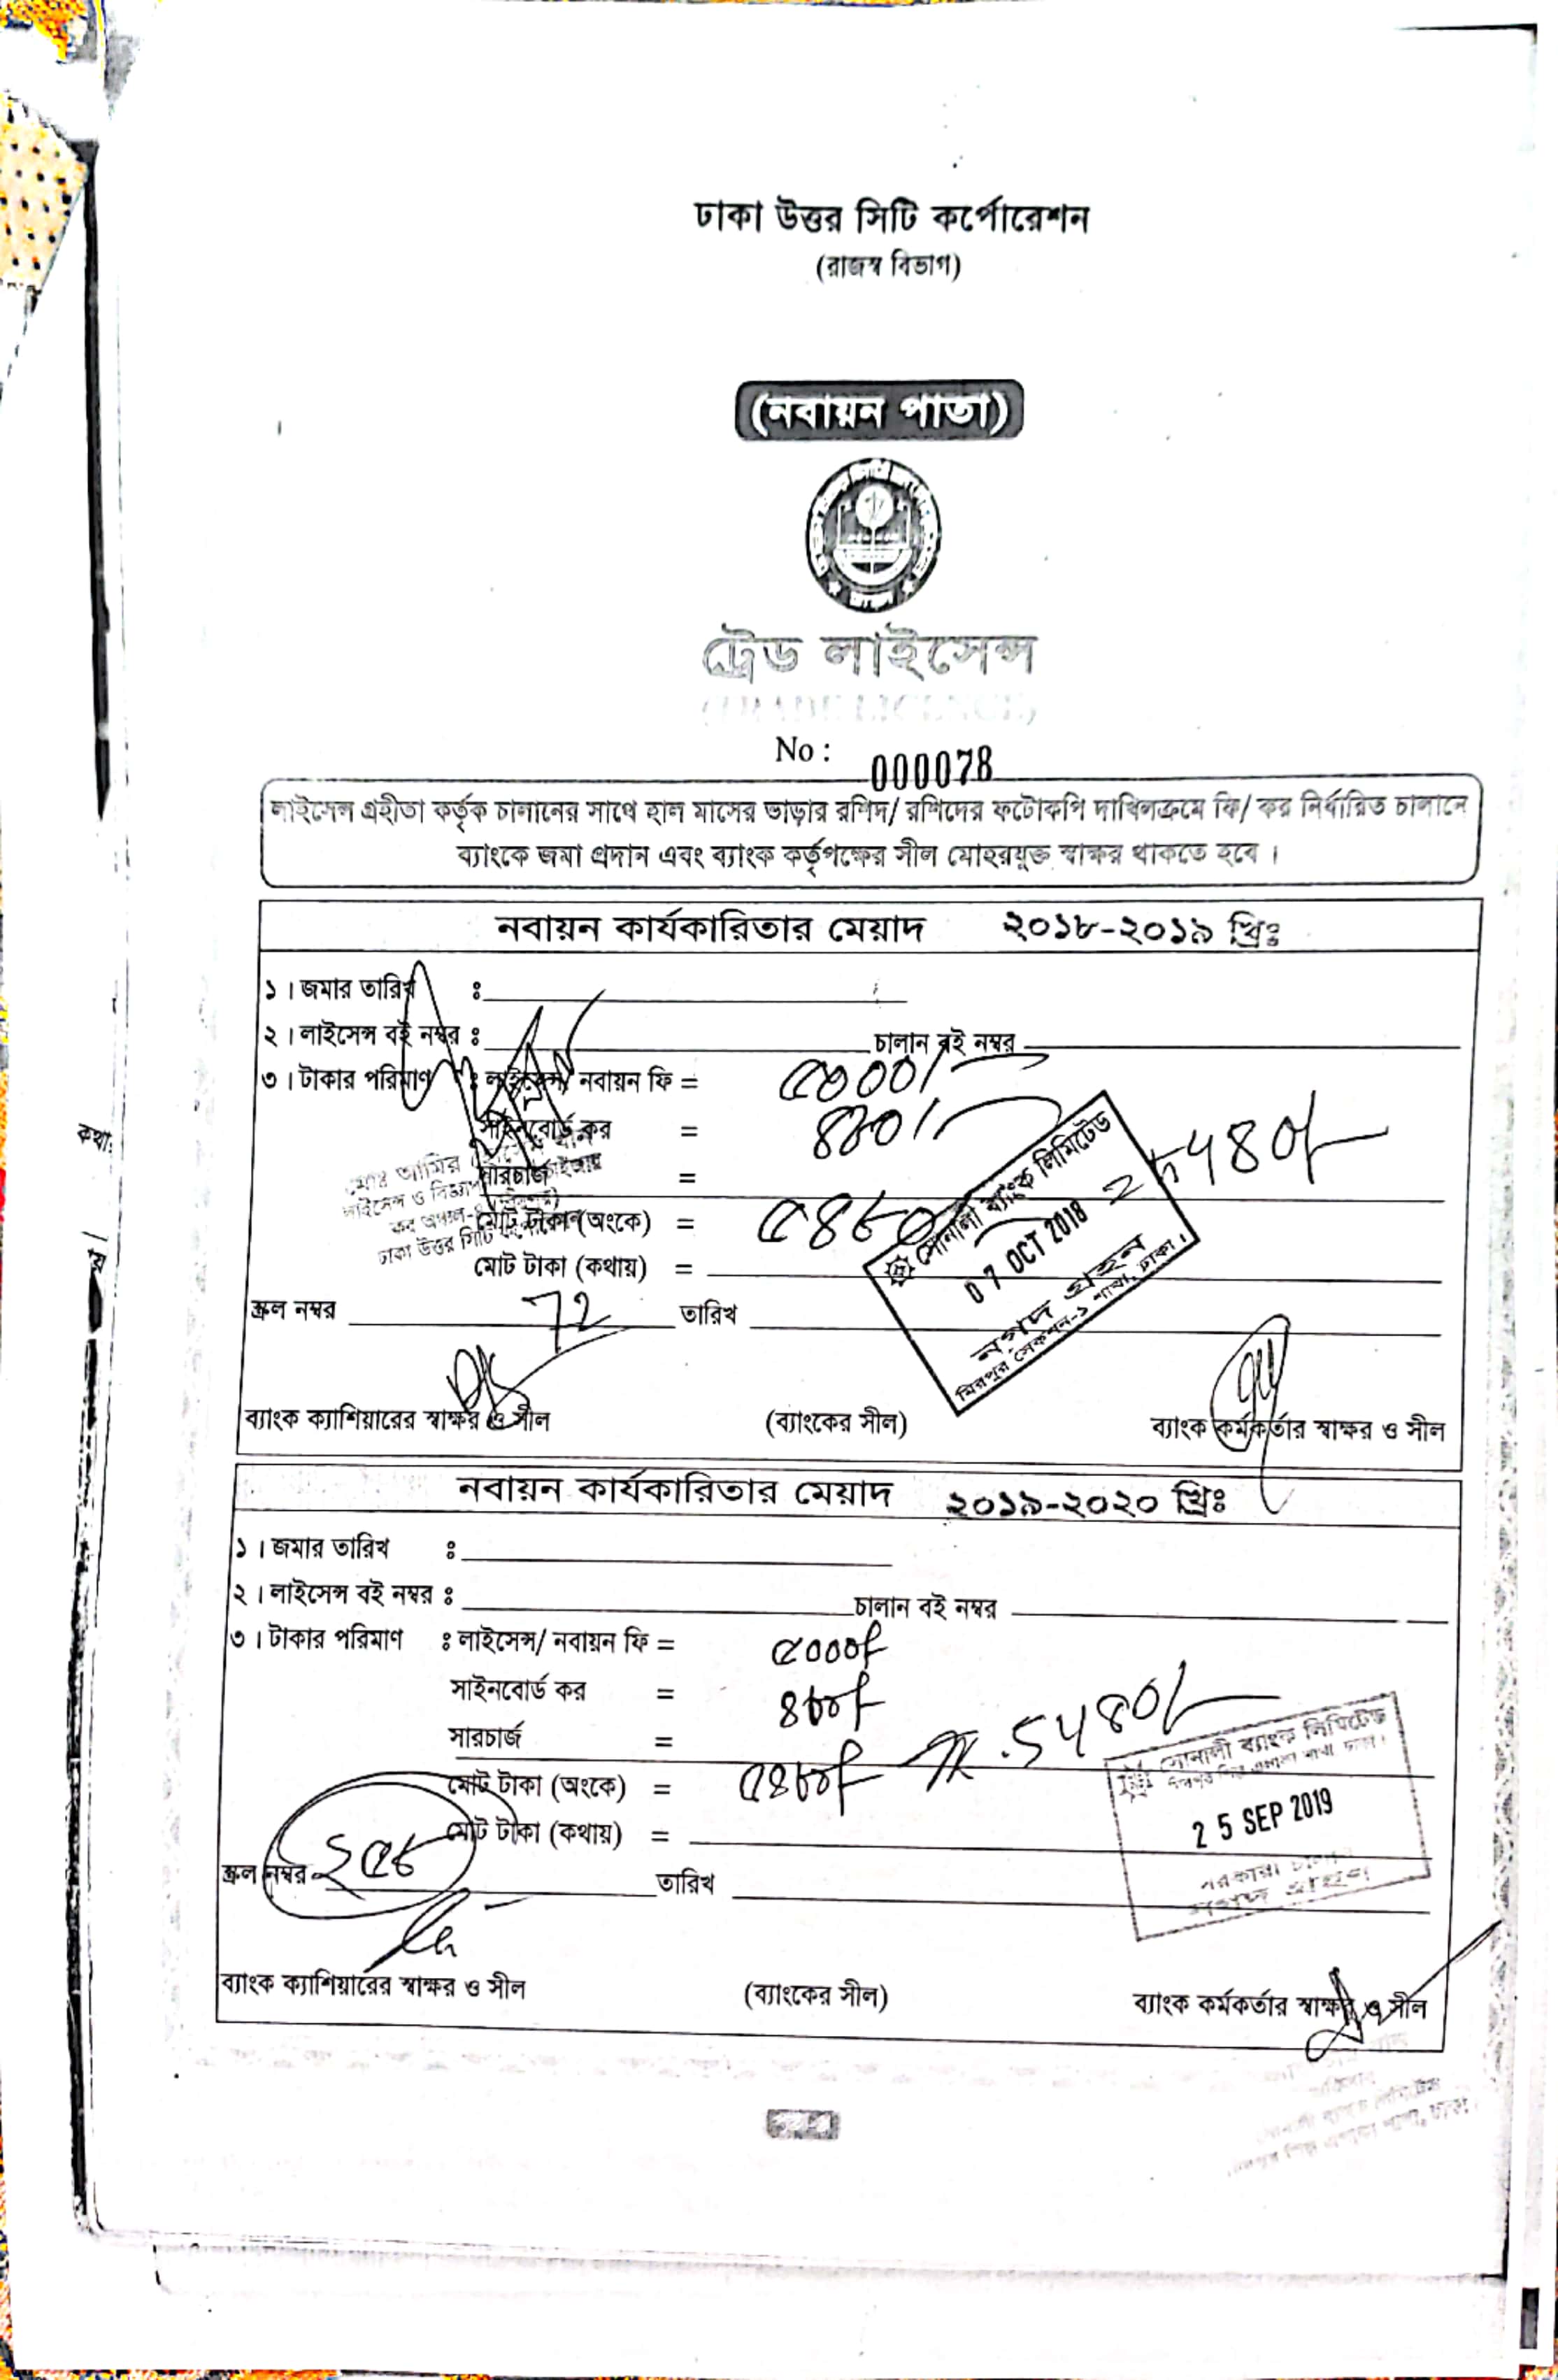 ঢাকা উত্তর সিটি কর্পোরেশন
(রাজস্ব বিভাগ)
(নবায়ন পাতা)
ট্রেড লাইসেন্স
(TRADE LICENCE)
No : 000078
লাইসেন্স গ্রহীতা কর্তৃক চালানের সাথে হাল মাসের ভাড়ার রশিদ/ রশিদের ফটোকপি দাখিলক্রমে ফি/ কর নির্ধারিত চালানে
ব্যাংকে জমা প্রদান এবং ব্যাংক কর্তৃপক্ষের সীল মোহরযুক্ত স্বাক্ষর থাকতে হবে ।
নবায়ন কার্যকারিতার মেয়াদ ২০১৮-২০১৯ খ্রিঃ
১ । জমার তারিখ ঃ
২ । লাইসেন্স বই নম্বর ঃ চালান বই নম্বর
৩ । টাকার পরিমাণ ঃ লাইসেন্স/ নবায়ন ফি = ৫০০০/-
সাইনবোর্ড কর = ৪৮০/-
সারচার্জ =
মোট টাকা (অংকে) = ৫৪৮০
মোট টাকা (কথায়) =
সোনালী ব্যাংক লিমিটেড
07 OCT 2018
নগদ গ্রহন
মিরপুর সেকশন-১ শাখা, ঢাকা ।
ঢাকা উত্তর সিটি
স্ক্রল নম্বর 72 তারিখ
ব্যাংক ক্যাশিয়ারের স্বাক্ষর ও সীল (ব্যাংকের সীল) ব্যাংক কর্মকর্তার স্বাক্ষর ও সীল
নবায়ন কার্যকারিতার মেয়াদ ২০১৯-২০২০ খ্রিঃ
১ । জমার তারিখ ঃ
২ । লাইসেন্স বই নম্বর ঃ চালান বই নম্বর
৩ । টাকার পরিমাণ ঃ লাইসেন্স/ নবায়ন ফি = ৫০০০/-
সাইনবোর্ড কর = ৪৮০/-
সারচার্জ =
মোট টাকা (অংকে) = ৫৪৮০/- 5480/-
মোট টাকা (কথায়) =
সোনালী ব্যাংক লিমিটেড
25 SEP 2019
নগদ গ্রহণ
স্ক্রল নম্বর ২৫৮ তারিখ
ব্যাংক ক্যাশিয়ারের স্বাক্ষর ও সীল (ব্যাংকের সীল) ব্যাংক কর্মকর্তার স্বাক্ষর ও সীল
কথা